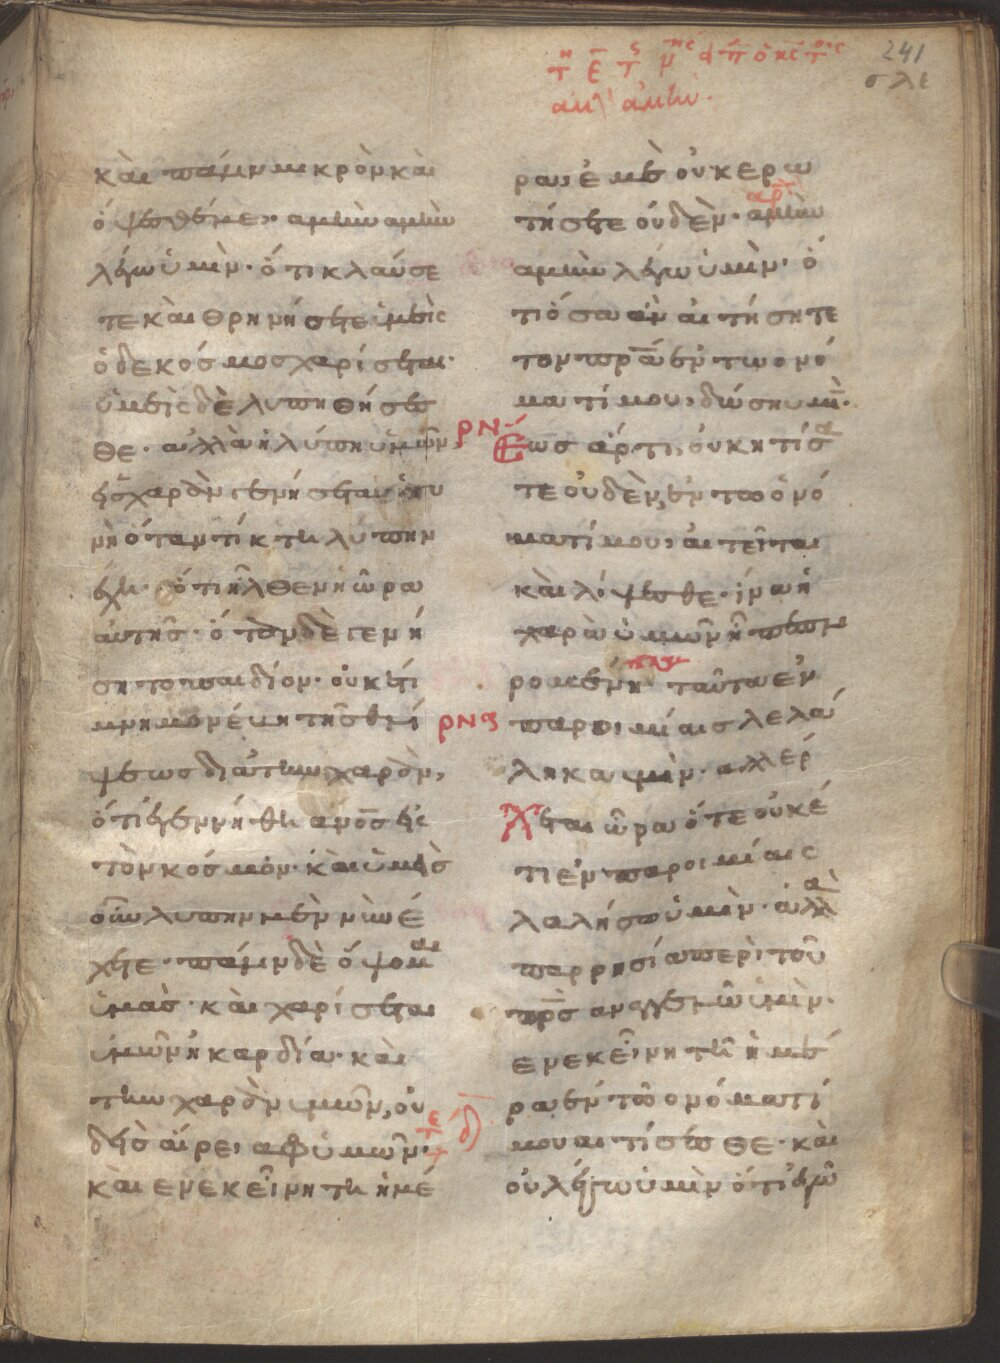 241
σλε
καὶ πάλιν μικρὸν καὶ
ὄψεσθέ με· αμὴν αμὴν
λέγω ὑμὶν· ὅτι κλαύσε
τε καὶ θρηνήσετε ὑμεῖς
ὁ δε κόσμος χαρίσεται·
ὑμεῖς δὲ λυπηθήσεσ
θε· αλλὰ ἡ λύπη ὑμῶν
εἰς χαρὰν γενήσεται· ἡ γυ
νὴ ὅταν τίκτη λύπην
ἔχει· ὅτι ἦλθεν ἡ ὥρα
ἀυτῆς· ὅταν δὲ γενή
ση το παιδίον· οὐκέτι
μνημονέυη τῆς θλί
ψεως διὰ τὴν χαρὰν,
ὅτι ἐγεννήθη ἀνος εἰς
τὸν κόσμον· καὶ ὑμεῖς
οὖν λύπην μὲν νῦν ἔ
χετε· πάλιν δὲ ὄψομαι
ὑμᾶς· καὶ χαρίσεται
ὑμῶν ἡ καρδία· καὶ
τὴν χαρὰν ὑμῶν, οὐ
δεὶς αἴρει αφ ὑμῶν·
καὶ εν εκείνη τη ἡμέ
ρα, ἐμὲ οὐκ ερω
τήσετε οὐδὲν· ἀμὴν
αμὴν λέγω ὑμὶν· ὅ
τι ὅσα ἂν αιτήσητε
τον πρα ἐν τω ονό
ματί μου, δώση υμὶν·
ρν
Εως ἄρτι, οὐκ ητίσα
τε οὐδὲν, ἐν τω ὀνό
ματί μου, αιτεῖται
καὶ λίψεσθε· ἵνα ἡ
χαρὰ ὑμῶν ῆ πεπλη
ρομένη· ταῦτα ἐν
ρνα
παροιμίαις λελά
ληκα υμὶν· αλλ έρ
χεται ὥρα ὅτε οὐκέ
τι ἐν παροιμίαις
λαλήσω ὑμὶν· ἀλλὰ
παρρησία περὶ τοῦ
πρς αναγγελῶ ὑμὶν·
εν εκείνη τῆ ἡμέ
ρα ἐν τῶ ονόματί
μου αιτίσεσθε· καὶ
οὐ λέγω ὑμὶν ὅτι ἐγὼ